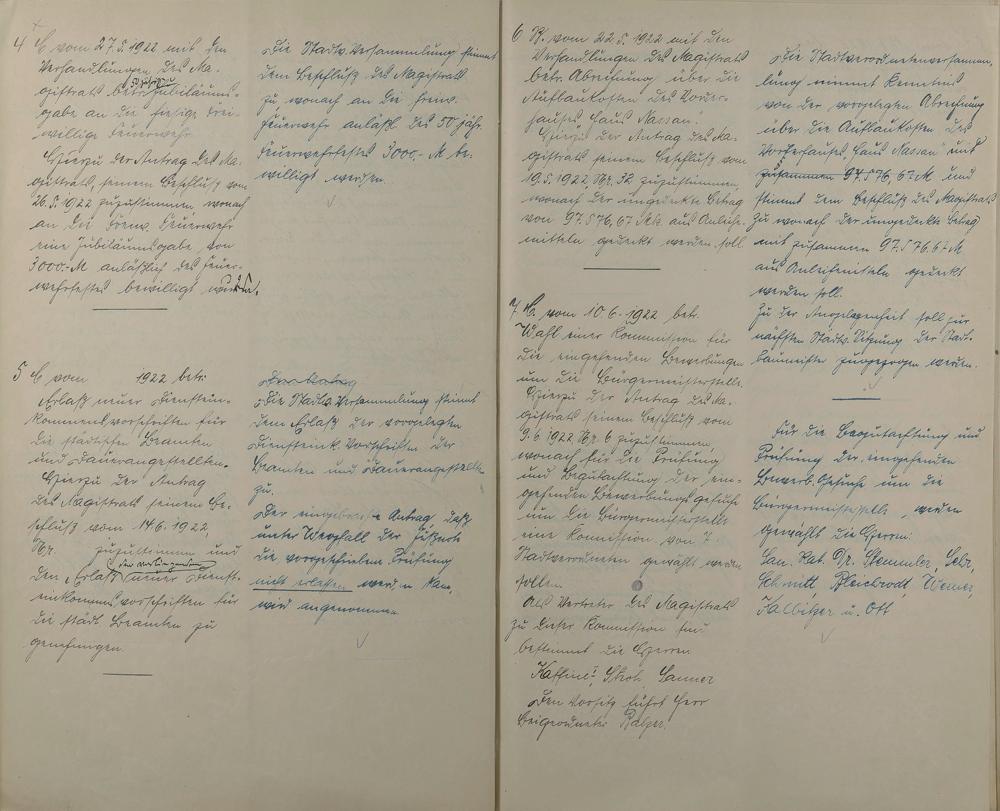 4 E vom 27.5.1922 mit den
Verhandlungen des Ma-
gistrats betr. Jubiläums-
gabe an die hiesige Frei-
willige Feuerwehr.
Hierzu der Antrag des Ma-
gistrats, seinem Beschluß vom
26.5.1922 zuzustimmen wonach
an die Freiw. Feuerwehr
eine Jubiläumsgabe von
3000.-M anläßlich des Feuer-
wehrfestes bewilligt wird.
Die Stadtv. Versammlung stimmt
dem Beschluß des Magistrats
zu, wonach an die freiw.
Feuerwehr anläßl. des 50 jähr.
Feuerwehrfestes 3000.- M be-
willigt werden.
5 E vom 1922 betr.
Erlaß neuer Dienstein-
kommensvorschriften für
die städtischen Beamten
und Dauerangestellten.
Hierzu der Antrag
des Magistrats seinem Be-
schluß vom 14.6.1922,
Nr. zuzustimmen und
den Erlaß neuer Dienst-
einkommsvorschriften für
die städt. Beamten zu
genehmigen.
Der Antrag
Die Stadtv. Versammlung stimmt
dem Erlaß der vorgelegten
Diensteink. Vorschriften der
Beamten und Dauerangestellten
zu.
Der eingebrachte Antrag, daß
unter Wegfall der
die vorgeschriebene Prüfung
nicht erlassen werden kann,
wird angenommen.
6 B. vom 22.5.1922 mit den
Verhandlungen des Magistrats
betr. Abrechnung über die
Aufbaukosten des Vorder-
hauses "Haus Nassau".
Hierzu der Antrag des Ma-
gistrats seinem Beschluß vom
19.5.1922, Nr. 32 zuzustimmen,
wonach der ungedeckte Betrag
von 97.576,67 Mk. aus Anleihe-
mitteln gedeckt werden soll.
Die Stadtverordnetenversamm-
lung nimmt Kenntnis
von der vorgelegten Abrechnung
über die Aufbaukosten des
Vorderhauses "Haus Nassau" und
zusammen 97.576,67 M und
stimmt dem Beschluß des Magistrats
zu wonach der ungedeckte Betrag
mit zusammen 97.576,67 M
aus Anleihemitteln gedeckt
werden soll.
Zu der Angelegenheit soll zur
nächsten Stadtv. Sitzung der Stadt-
baumeister zugezogen werden.
7. E. vom 10.6.1922 betr.
Wahl einer Kommission für
die eingehenden Bewerbungen
um die Bürgermeisterstelle.
Hierzu der Antrag des Ma-
gistrats seinem Beschluß vom
9.6.1922 Nr. 6 zuzustimmen,
wonach für die Prüfung
und Begutachtung der ein-
gehenden Bewerbungsgesuche
um die Bürgermeisterstelle
eine Kommission von 7
Stadtverordneten gewählt werden
sollen.
Als Vertreter des Magistrats
zu dieser Kommission sind
bestimmt die Herren
Den Vorsitz führt Herr
Beigeordneter Balzer.
Für die Begutachtung und
Prüfung der eingehenden
Bewerb. Gesuche um die
Bürgermeisterstelle, werden
gewählt die Herren:
San. Rat. Dr. Stemmler,
Schmitt, Bleichrodt, Werner,
Kalbitzer u. Ott